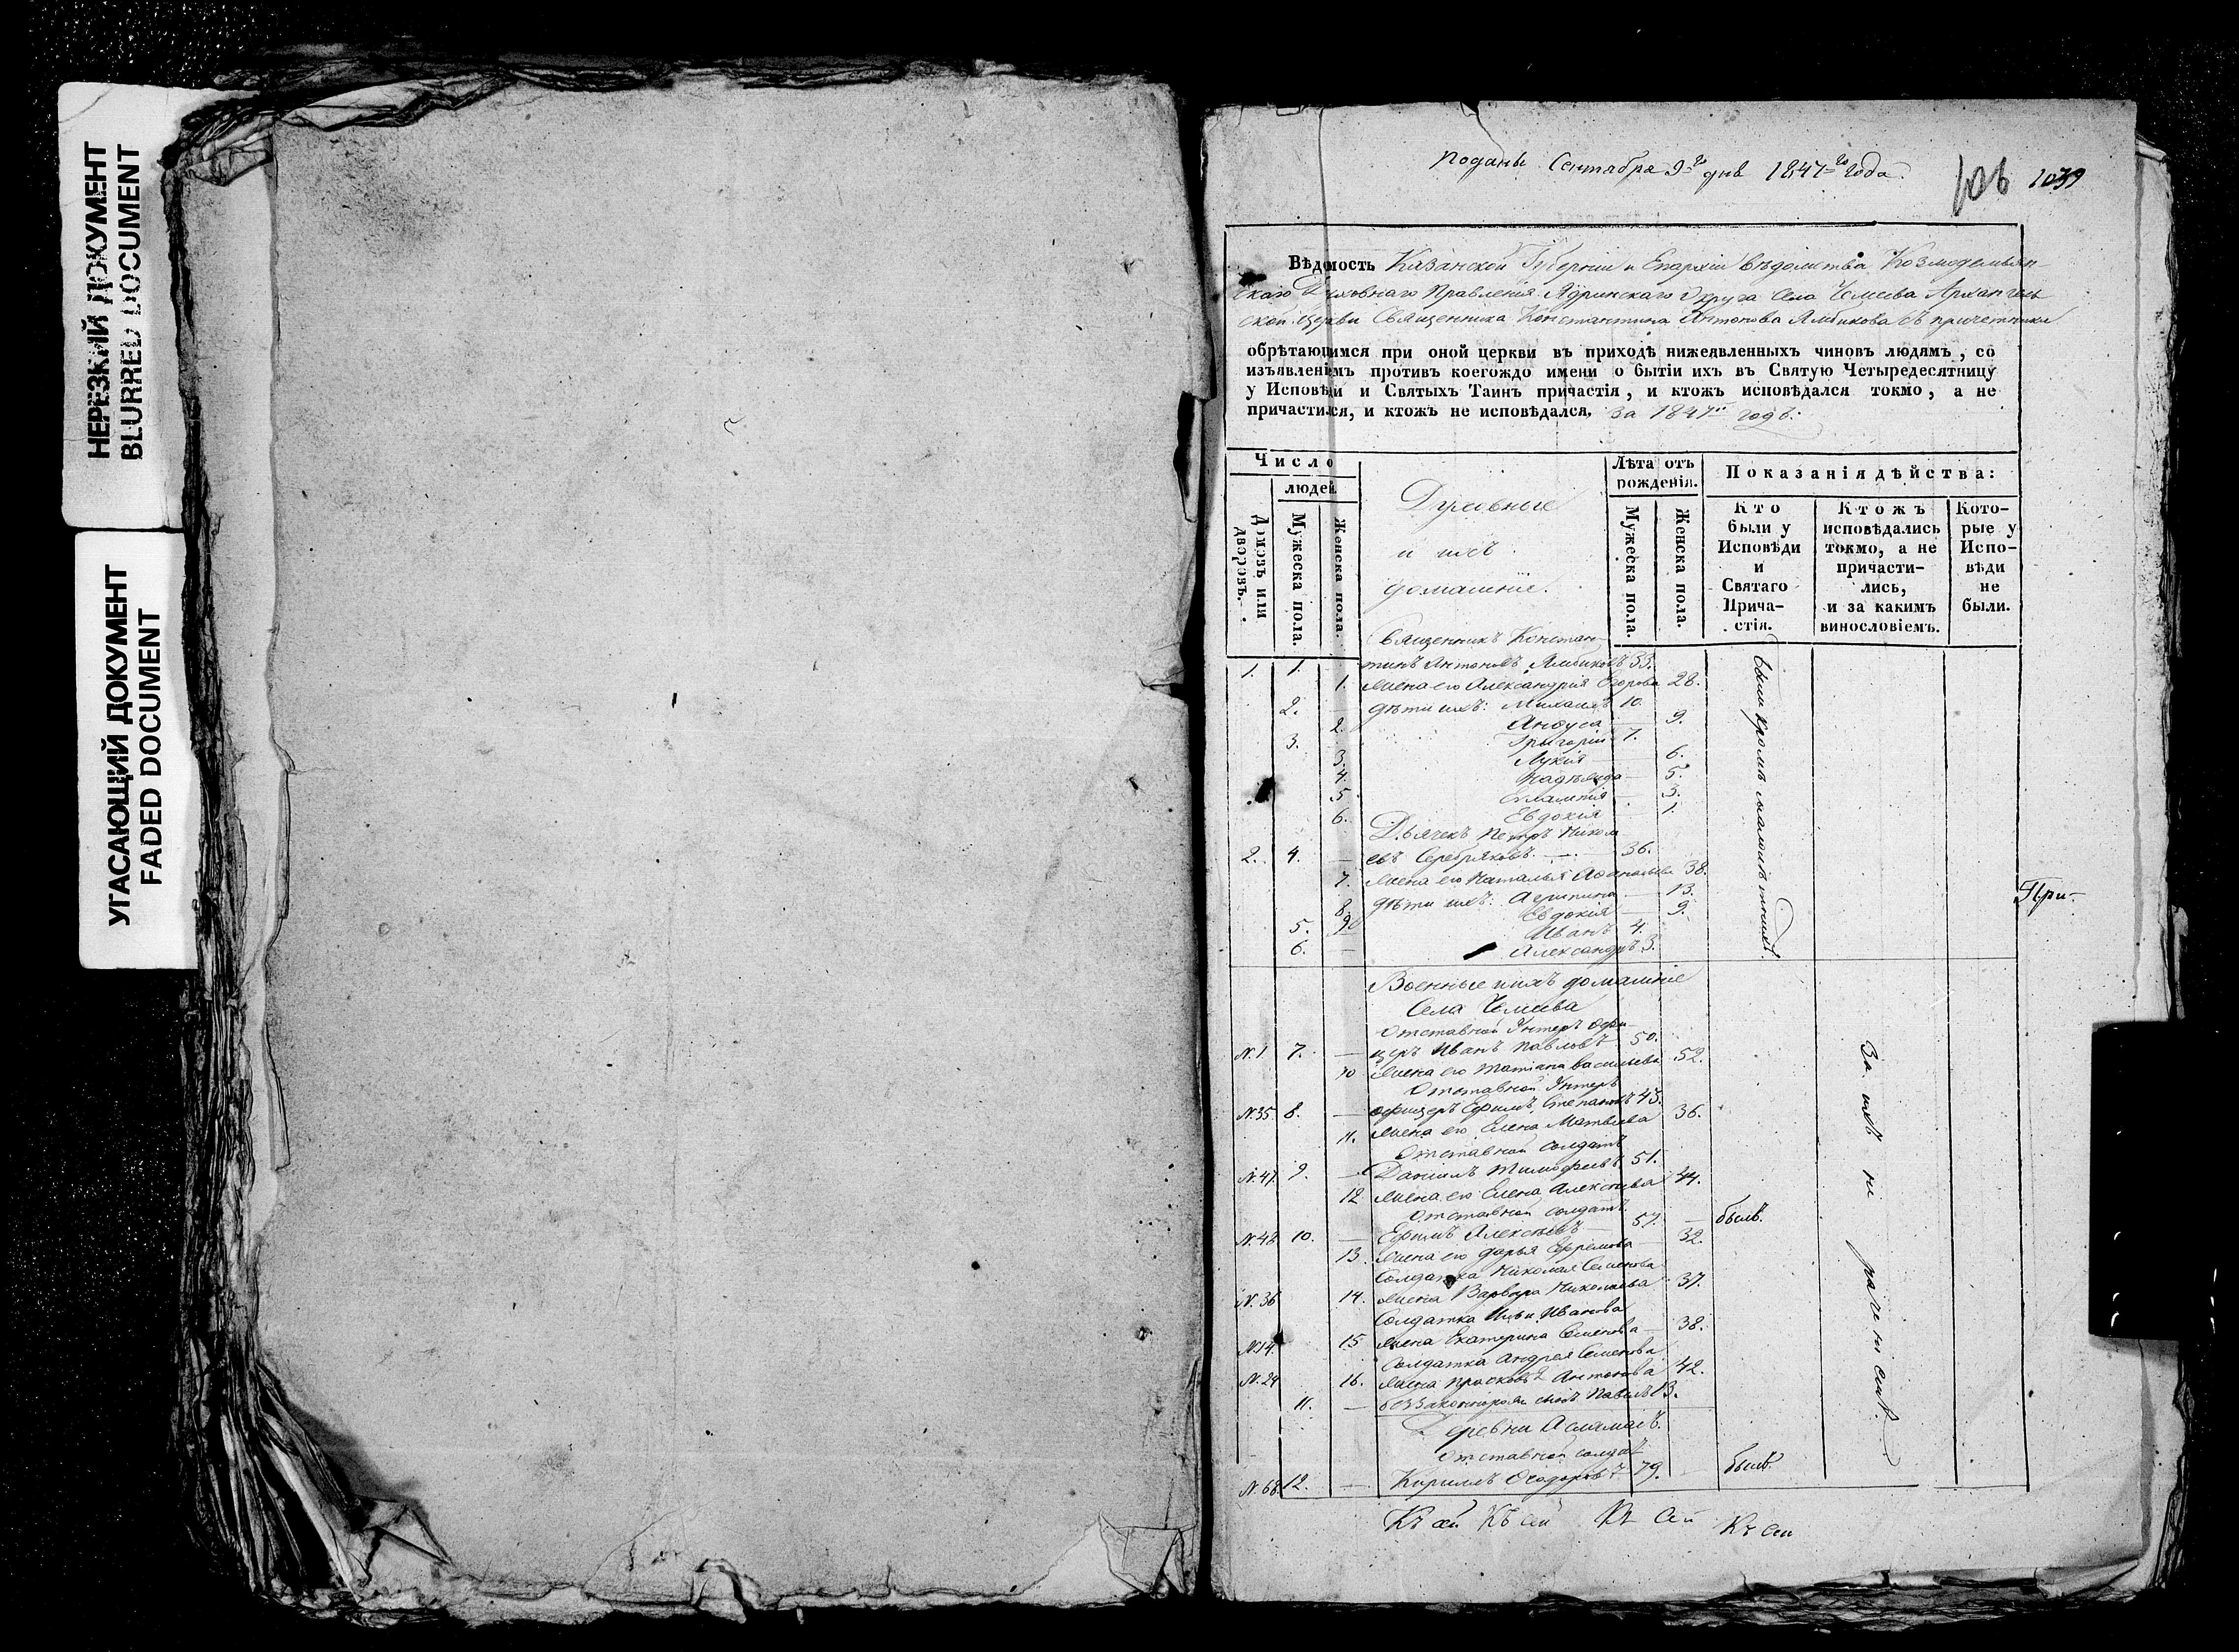 НЕРЕЗКИЙ ДОКУМЕНТ
BLURRED DOCUMENT
УГАСАЮЩИЙ ДОКУМЕНТ
FADED DOCUMENT
поданы Сентября 9го дня 1847го года.
1039
Вѣдомость Казанской Губерніи и Епархіи вѣдомства Козмодемьян-
скаго Духовнаго Правленія Ядринскаго Округа Села Чемеева Архангель
ской церкви Священника Константина Антонова Ямбикова съ причетники
обрѣтающимся при оной церкви въ приходѣ нижеявленныхъ чиновъ людямъ, со
изъявленіемъ противъ коегождо имени о бытіи ихъ въ Святую Четыредесятницу
у Исповѣди и Святыхъ Таинъ причастія, и ктожъ исповѣдался токмо, а не
причастился, и ктожъ не исповѣдался, за 1847й годъ.
Число
людей
Домовъ или дворовъ.
Мужеска пола.
Женска пола.
Духовные
и ихъ
домашніе.
Лѣта отъ рожденія.
Мужеска пола.
Женска пола.
Показанія дѣйства:
Кто были у Исповѣди и Святаго Прича-стія.
Ктожъ исповѣдались токмо, а не причасти-лись, и за какимъ винословіемъ.
Кото-рые у Испо-вѣди не были.
Священникъ Констан-
1. 1. — тинъ Антоновъ Ямбиковъ 35.
1. Жена его Александрія Егорова 28.
2. — дѣти ихъ: Михаилъ 10.
2. Анфуса — 9.
3. Григорій 7.
3. Лукія — 6.
4. Надѣжда — 5.
5 Евлампія — 3.
6. Евдокія — 1.
Дьячекъ Петръ Никола
2. 4. — евъ Серебряковъ — 36.
7. Жена его Наталья Афанасьева 38.
8. дѣти ихъ: Агрипина — 13.
9. Евдокія — 9.
5. — Иванъ 4.
6. — Александръ 3.
были кромѣ малолѣтнихъ
При-
Военные и ихъ домашніе
Села Чемеева
Отставной Унтеръ офи-
N.1 7. — церъ Иванъ Павловъ 50.
10 Жена его Татіана Васильева 52.
Отставной Унтеръ
N.35 8. — офицеръ Ефимъ Степановъ 43.
11. Жена его Елена Матвѣева 36.
Отставной солдатъ
N.47. 9. — Даніилъ Тимофеевъ 51.
12 Жена его Елена Алексѣева 44.
Отставной солдатъ
N.48. 10. — Ефимъ Алексѣевъ 57. — былъ.
13. Жена его Дарья Ефремова 32.
Солдатка Николая Семенова
N.36 14. Жена Варвара Николаева 37.
Солдатка Ильи Иванова
N.14. 15 Жена Екатерина Семенова — 38.
Солдатка Андрея Семенова
N.24 16. Жена Прасковья Антонова 42.
11. — сынъ Павелъ 13.
Деревни Аслама съ.
Отставной солдатъ
N.68. 12. — Кириллъ Феодоровъ 79. — былъ.
За не раченіемъ
Къ сей Къ сей Къ сей Къ сей